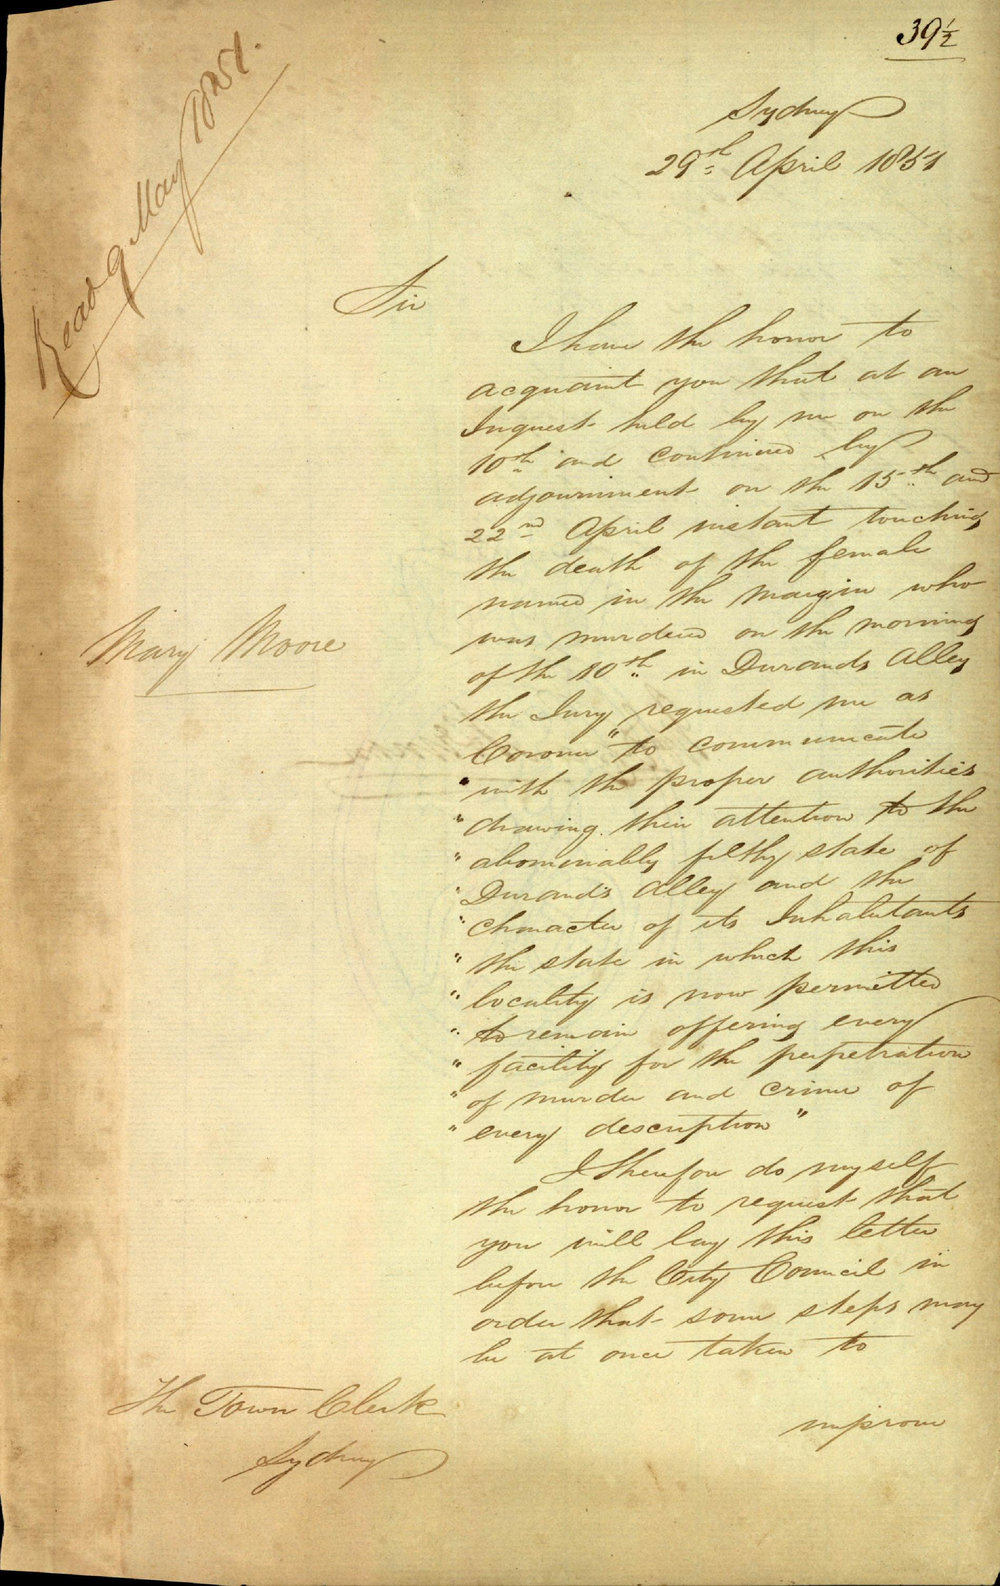 39½
Read 9 May 1851.
Sydney
29th April 1851
Sir
I have the honor to
acquaint you that at an
Inquest held by me on the
10th and continued by
adjournment on the 15th and
22nd April instant touching
the death of the female
named in the margin who
Mary Moore
was murdered on the morning
of the 10th in Durands Alley
the Jury requested me as
Coroner "to communicate
"with the proper authorities
"drawing their attention to the
"abominably filthy state of
"Durand's Alley and the
"character of its Inhabitants
"the state in which this
"locality is now permitted
"to remain offering every
"facility for the perpetration
"of murder and crime of
"every description"
I therefore do myself
the honor to request that
you will lay this letter
before the City Council in
order that some steps may
be at once taken to
improve
The Town Clerk
Sydney